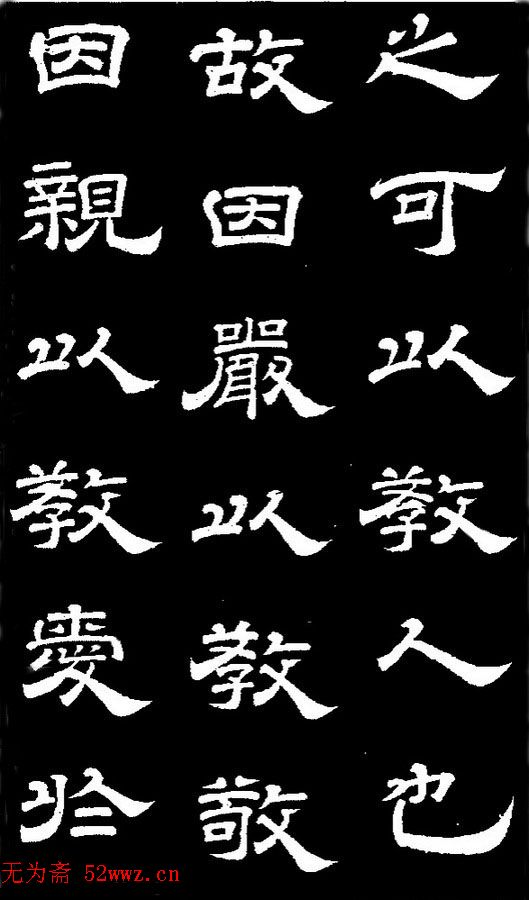 之可以教人也
故因嚴以教敬
因親以教愛於
无为斋 52wwz.cn